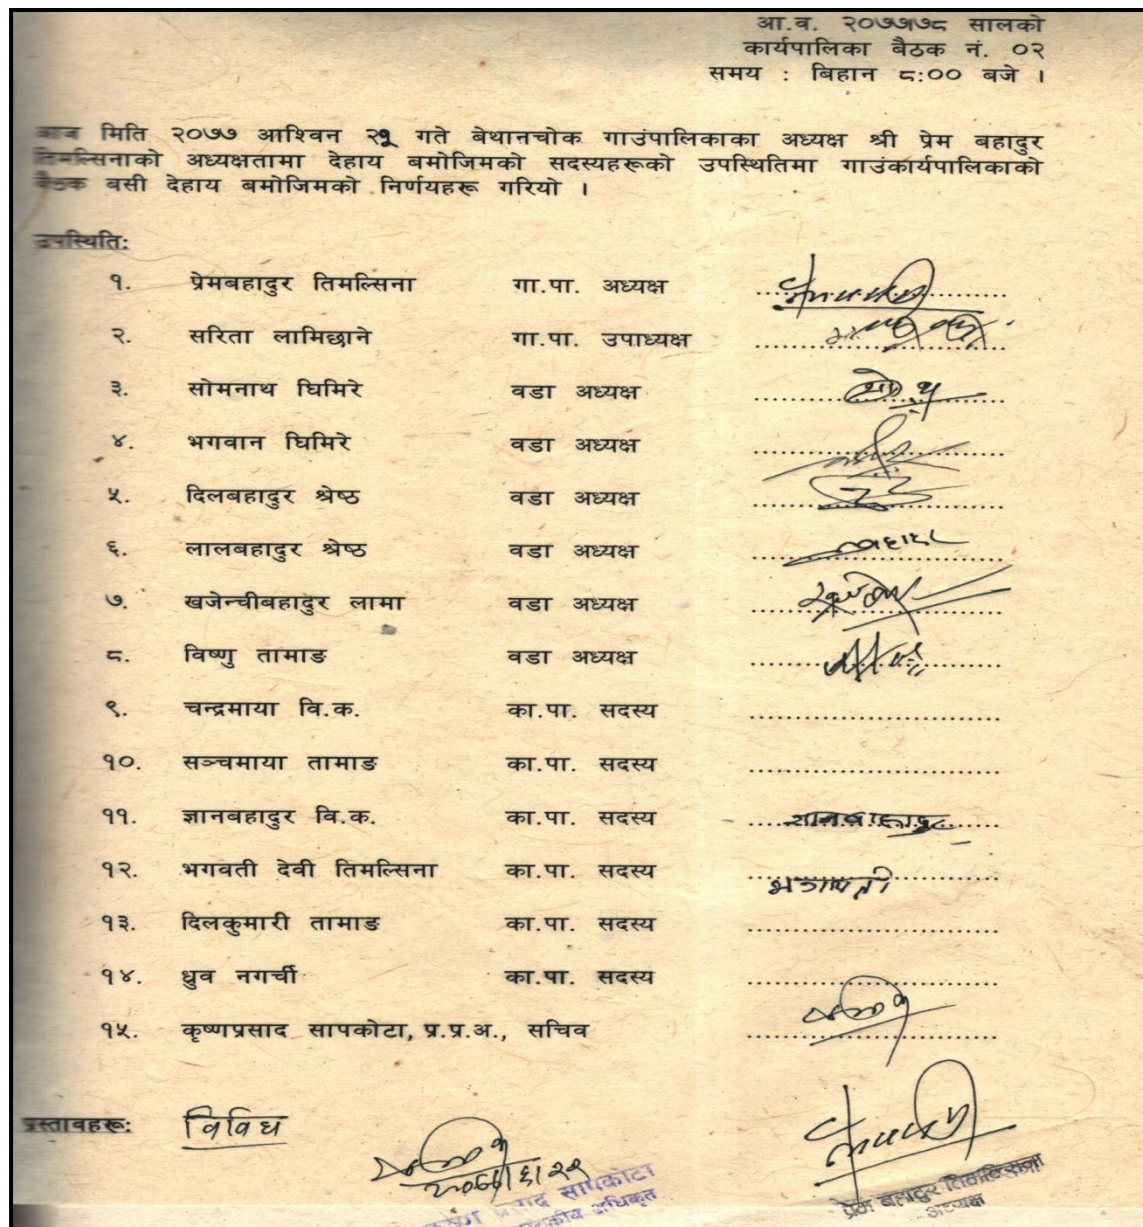 आ.व. २०७७।७८ सालको
कार्यपालिका बैठक नं. ०२
समय : बिहान ८:०० बजे ।
आज मिति २०७७ आश्विन गते बेथानचोक गाउंपालिकाका अध्यक्ष श्री प्रेम बहादुर
तिमल्सिनाको अध्यक्षतामा देहाय बमोजिमको सदस्यहरूको उपस्थितिमा गाउंकार्यपालिकाको
बैठक बसी देहाय बमोजिमको निर्णयहरू गरियो ।
उपस्थिति:
१. प्रेमबहादुर तिमल्सिना गा.पा. अध्यक्ष
२. सरिता लामिछाने गा.पा. उपाध्यक्ष
३. सोमनाथ घिमिरे वडा अध्यक्ष
४. भगवान घिमिरे वडा अध्यक्ष
५. दिलबहादुर श्रेष्ठ वडा अध्यक्ष
६. लालबहादुर श्रेष्ठ वडा अध्यक्ष
७. खजेन्चीबहादुर लामा वडा अध्यक्ष
८. विष्णु तामाङ वडा अध्यक्ष
९. चन्द्रमाया वि.क. का.पा. सदस्य ..............................
१०. सञ्चमाया तामाङ का.पा. सदस्य ..............................
११. ज्ञानबहादुर वि.क. का.पा. सदस्य
१२. भगवती देवी तिमल्सिना का.पा. सदस्य
१३. दिलकुमारी तामाङ का.पा. सदस्य ..............................
१४. ध्रुव नगर्ची का.पा. सदस्य ..............................
१५. कृष्णप्रसाद सापकोटा, प्र.प्र.अ., सचिव
प्रस्तावहरू: विविध
सापकोटा
प्रेम बहादुर तिमल्सिना
अध्यक्ष